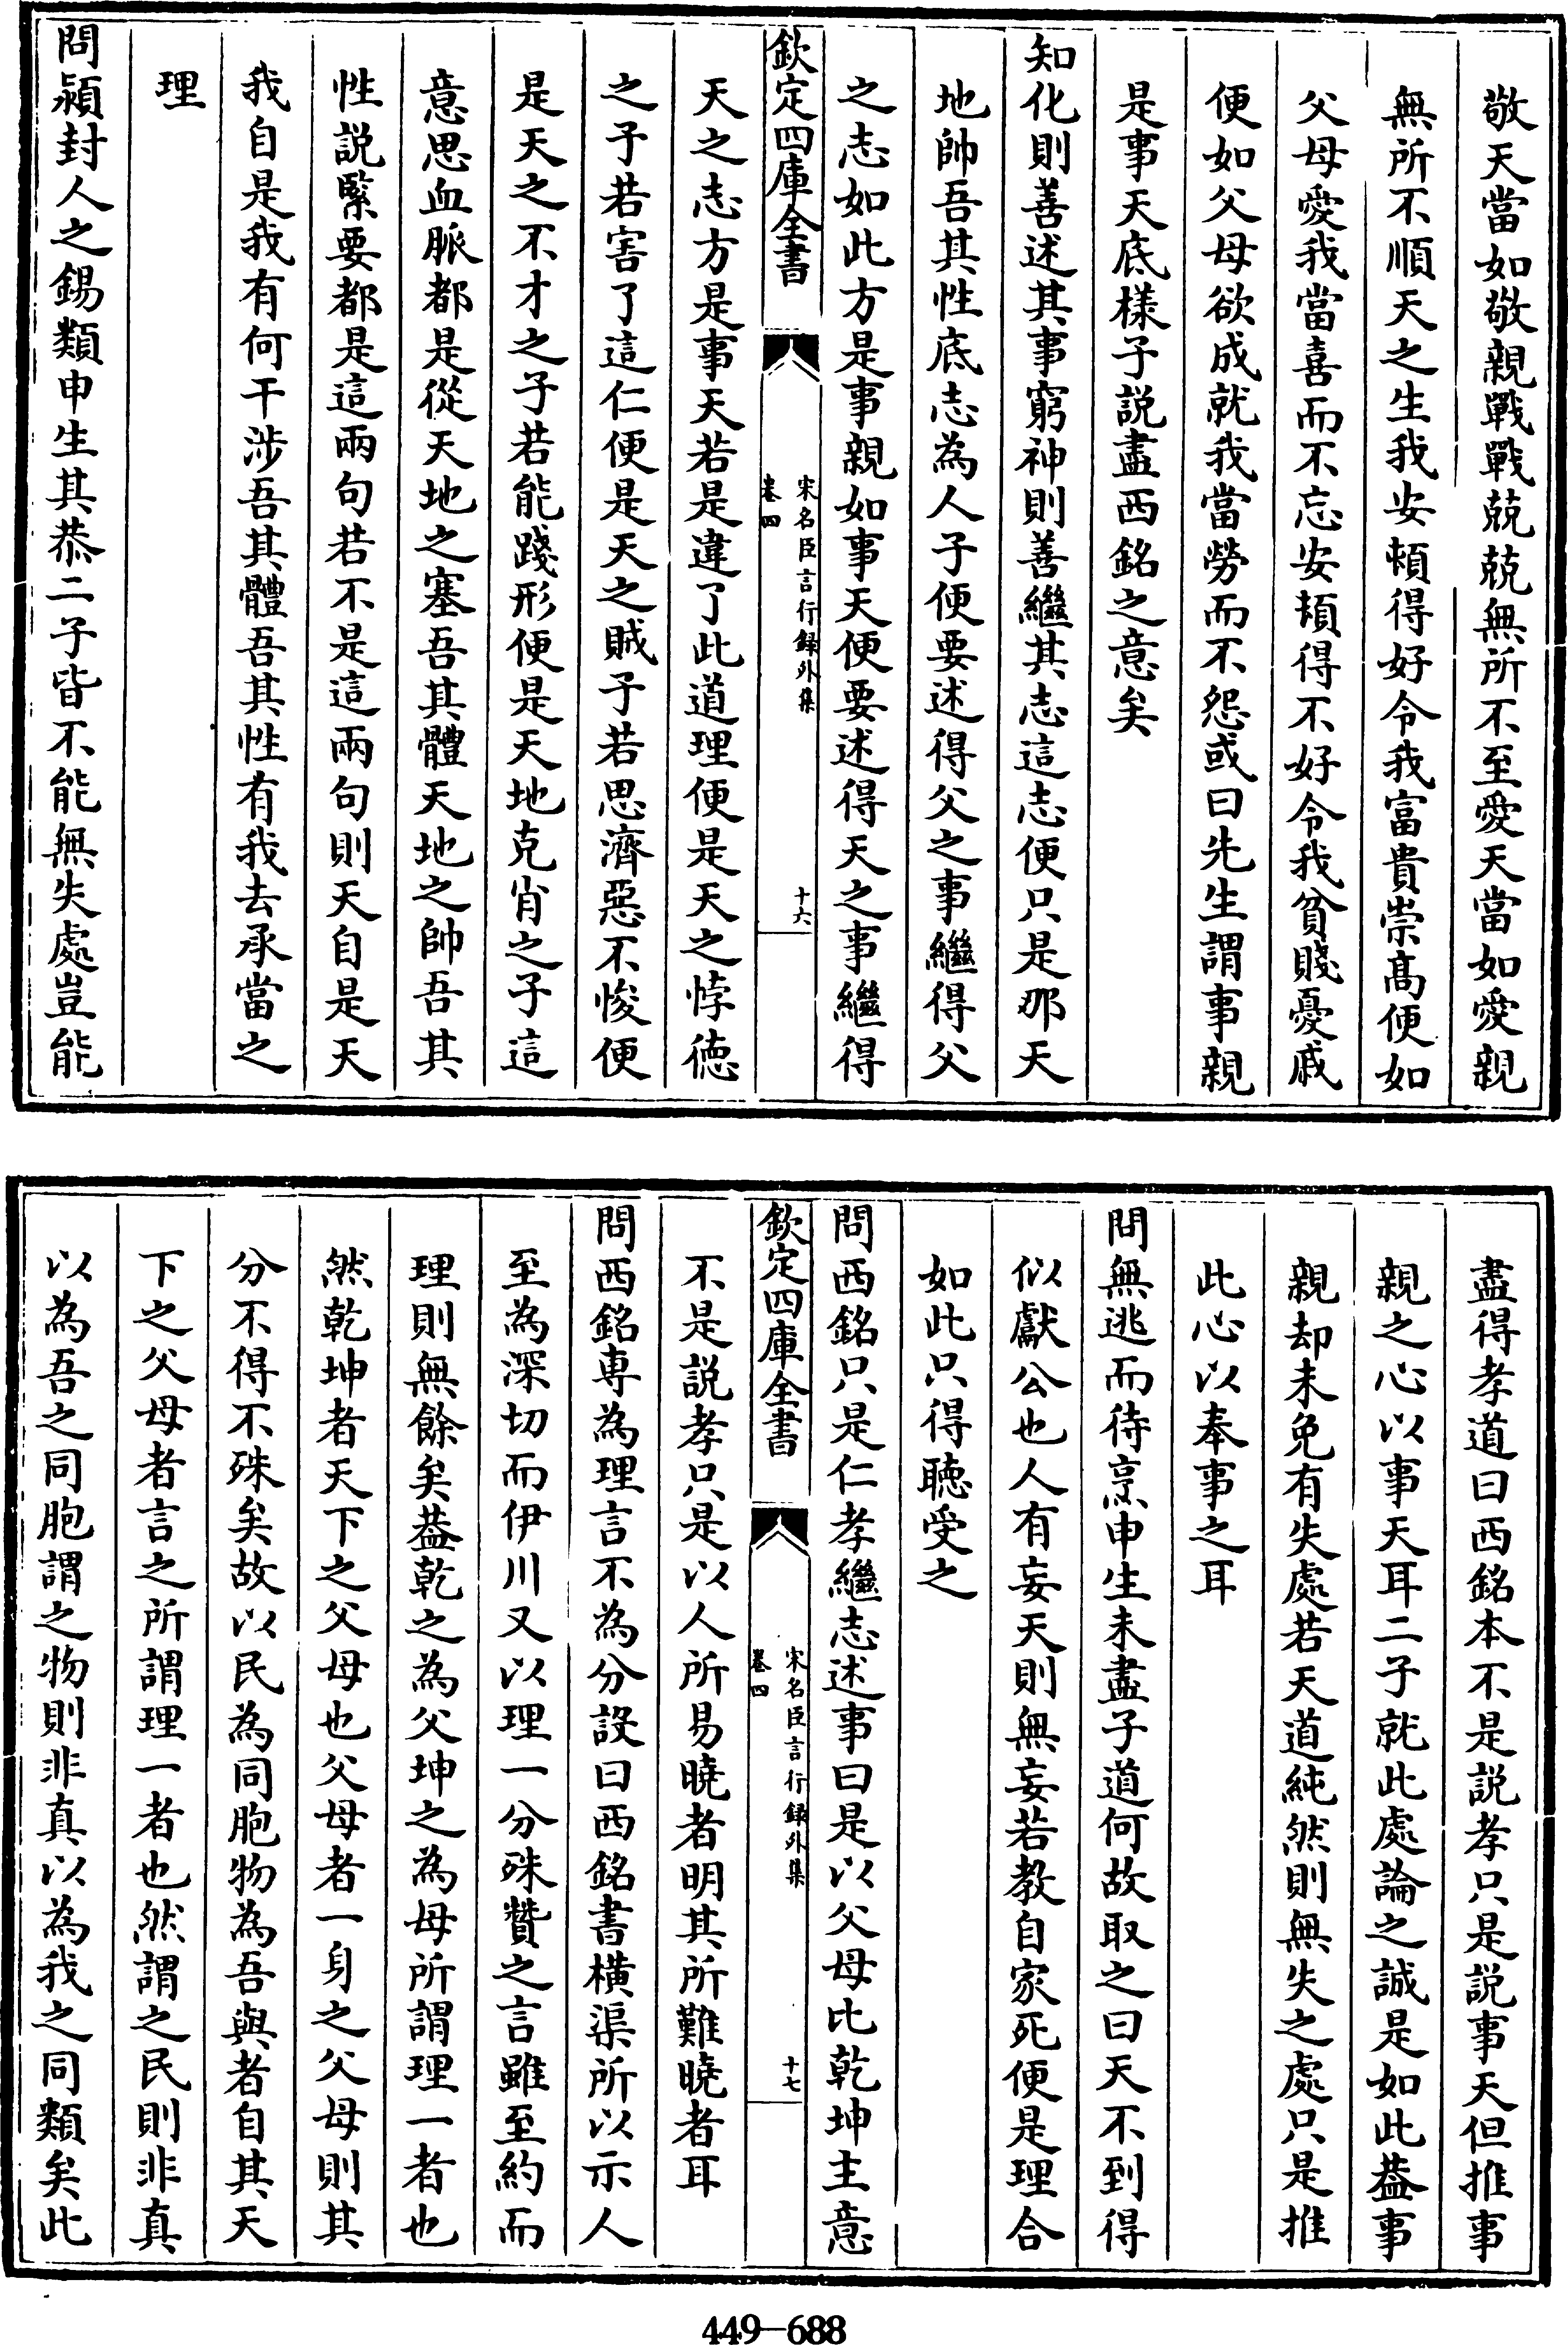 敬天當如敬親戰戰兢兢無所不至愛天當如愛親
無所不順天之生我安頓得好令我富貴崇髙便如
父母愛我當喜而不忘安頓得不好令我貧賤憂戚
便如父母欲成就我當勞而不怨或曰先生謂事親
是事天底樣子説盡西銘之意矣
知化則善述其事窮神則善繼其志這志便只是那天
地帥吾其性底志為人子便要述得父之事繼得父
之志如此方是事親如事天便要述得天之事繼得
欽定四庫全書
宋名臣言行録外集
卷四
十六
天之志方是事天若是違了此道理便是天之悖徳
之子若害了這仁便是天之賊子若思濟惡不悛便
是天之不才之子若能踐形便是天地克肖之子這
意思血脈都是從天地之塞吾其體天地之帥吾其
性説緊要都是這兩句若不是這兩句則天自是天
我自是我有何干涉吾其體吾其性有我去承當之
理
問潁封人之錫類申生其恭二子皆不能無失處豈能
盡得孝道曰西銘本不是説孝只是説事天但推事
親之心以事天耳二子就此處論之誠是如此葢事
親却未免有失處若天道純然則無失之處只是推
此心以奉事之耳
問無逃而待烹申生未盡子道何故取之曰天不到得
似獻公也人有妄天則無妄若教自家死便是理合
如此只得聴受之
問西銘只是仁孝繼志述事曰是以父母比乾坤主意
欽定四庫全書
宋名臣言行録外集
卷四
十七
不是説孝只是以人所易曉者明其所難曉者耳
問西銘専為理言不為分設曰西銘書橫渠所以示人
至為深切而伊川又以理一分殊贊之言雖至約而
理則無餘矣葢乾之為父坤之為母所謂理一者也
然乾坤者天下之父母也父母者一身之父母則其
分不得不殊矣故以民為同胞物為吾與者自其天
下之父母者言之所謂理一者也然謂之民則非真
以為吾之同胞謂之物則非真以為我之同類矣此
449-688